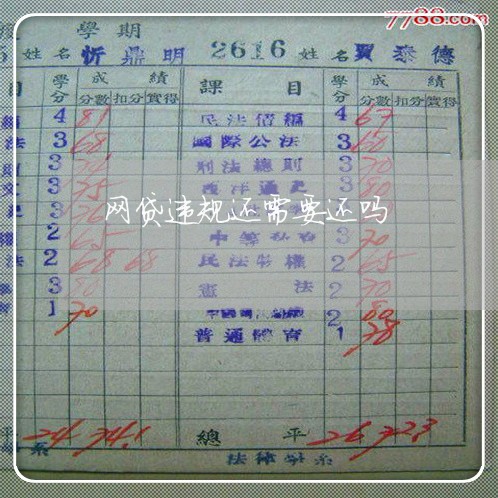 7788.com
學期
5 姓名 忻鼎明 2616 姓名 賈泰德
目 學分 成績 課目 學分 成績
分數 扣分 實得 分數 扣分 實得
4 81 民法債編 4 67
法 3 68 國際公法 3 60
3 刑法總則 3 70
文 3 75 西洋通史 3 80
史 3
網贷违规还需要还吗
權 2 65 3 70
法 2 68 68 民法物權 2 65
3 80 憲法 2 70
1 70 2 80
普通體育 1 78
平 24 74.1 總平 26 72.3
系 法律學系